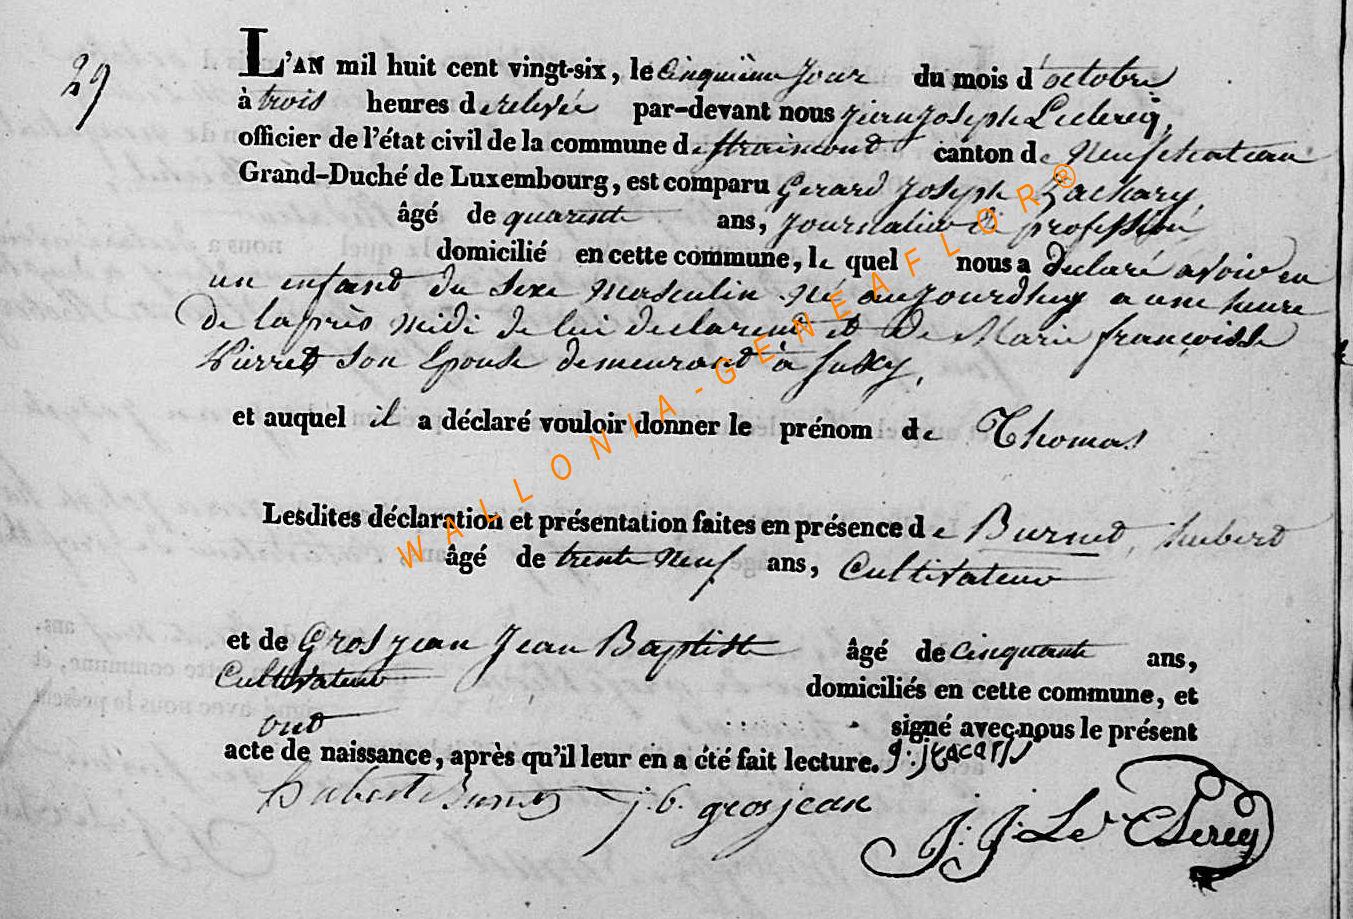 29
L'AN mil huit cent vingt-six, le cinquième jour du mois d'octobre
à trois heures de relevée par-devant nous Jean Joseph Leclercq,
officier de l'état civil de la commune de Straimont canton de Neufchateau
Grand-Duché de Luxembourg, est comparu Gerard Joseph Zachary,
âgé de quarente ans, Journalier de profession
domicilié en cette commune, le quel nous a declaré avoir eu
un enfant du Sexe Masculin né aujourdhuy a une heure
De laprès midi de lui declarent et De Marie françoisse
Pierret Son Epouse demeurant à Suxy,
et auquel il a déclaré vouloir donner le prénom de Thomas
Lesdites déclaration et présentation faites en présence de Burnet, hubert
âgé de trente neuf ans, Cultivateur
et de Grosjean Jean Baptiste âgé de cinquante ans,
Cultivateur domiciliés en cette commune, et
ont signé avec nous le présent
acte de naissance, après qu'il leur en a été fait lecture.
hubert Burnet j. b. grosjean
J. J. Le Clercq
WALLONIA-GENEAFLOR®